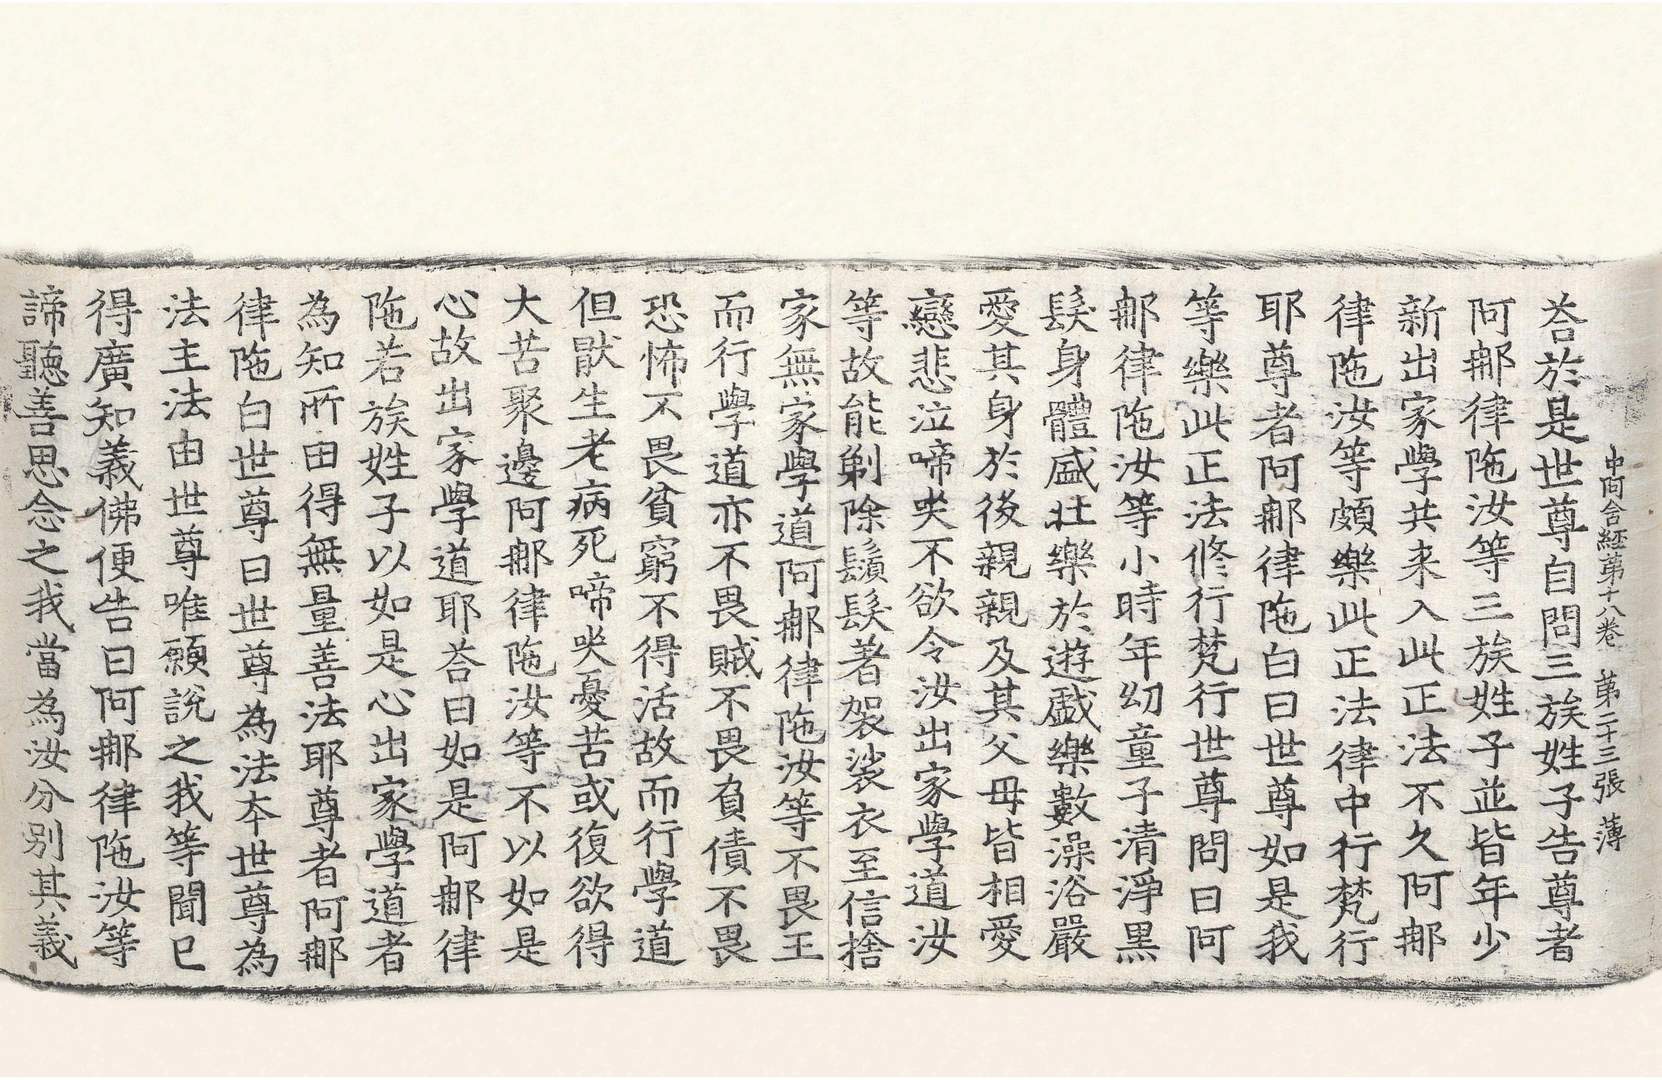 中阿含経第十八卷 第二十三張 薄
荅於是世尊自問三族姓子告尊者
阿那律陁汝等三族姓子並皆年少
新出家學共来入此正法不久阿那
律陁汝等頗樂此正法律中行梵行
耶尊者阿那律陁白曰世尊如是我
等樂此正法修行梵行世尊問曰阿
那律陁汝等小時年幼童子清淨黑
髮身體盛壯樂於遊戯樂數澡浴嚴
愛其身於後親親及其父母皆相愛
戀悲泣啼哭不欲令汝出家學道汝
等故能剃除鬚髮著袈裟衣至信捨
家無家學道阿那律陁汝等不畏王
而行學道亦不畏賊不畏負債不畏
恐怖不畏貧窮不得活故而行學道
但猒生老病死啼哭憂苦或復欲得
大苦聚邊阿那律陁汝等不以如是
心故出家學道耶荅曰如是阿那律
陁若族姓子以如是心出家學道者
為知所由得無量善法耶尊者阿那
律陁白世尊曰世尊為法本世尊為
法主法由世尊唯願說之我等聞已
得廣知義佛便告曰阿那律陁汝等
諦聽善思念之我當為汝分別其義